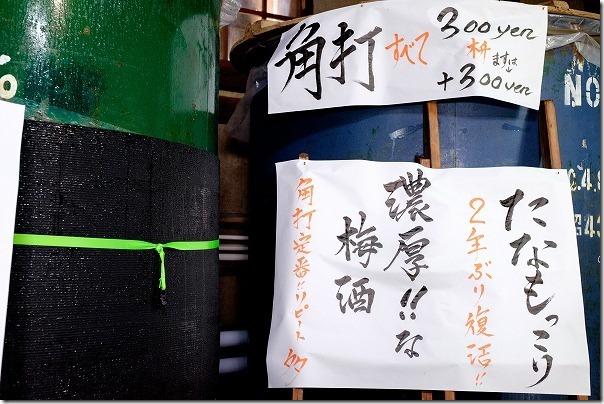 角打 すべて 300yen
枡 ますは↓
+300yen
たなもっこり
2年ぶり復活!!
濃厚!!な
梅酒
角打定番!!リピート多
NO
昭43